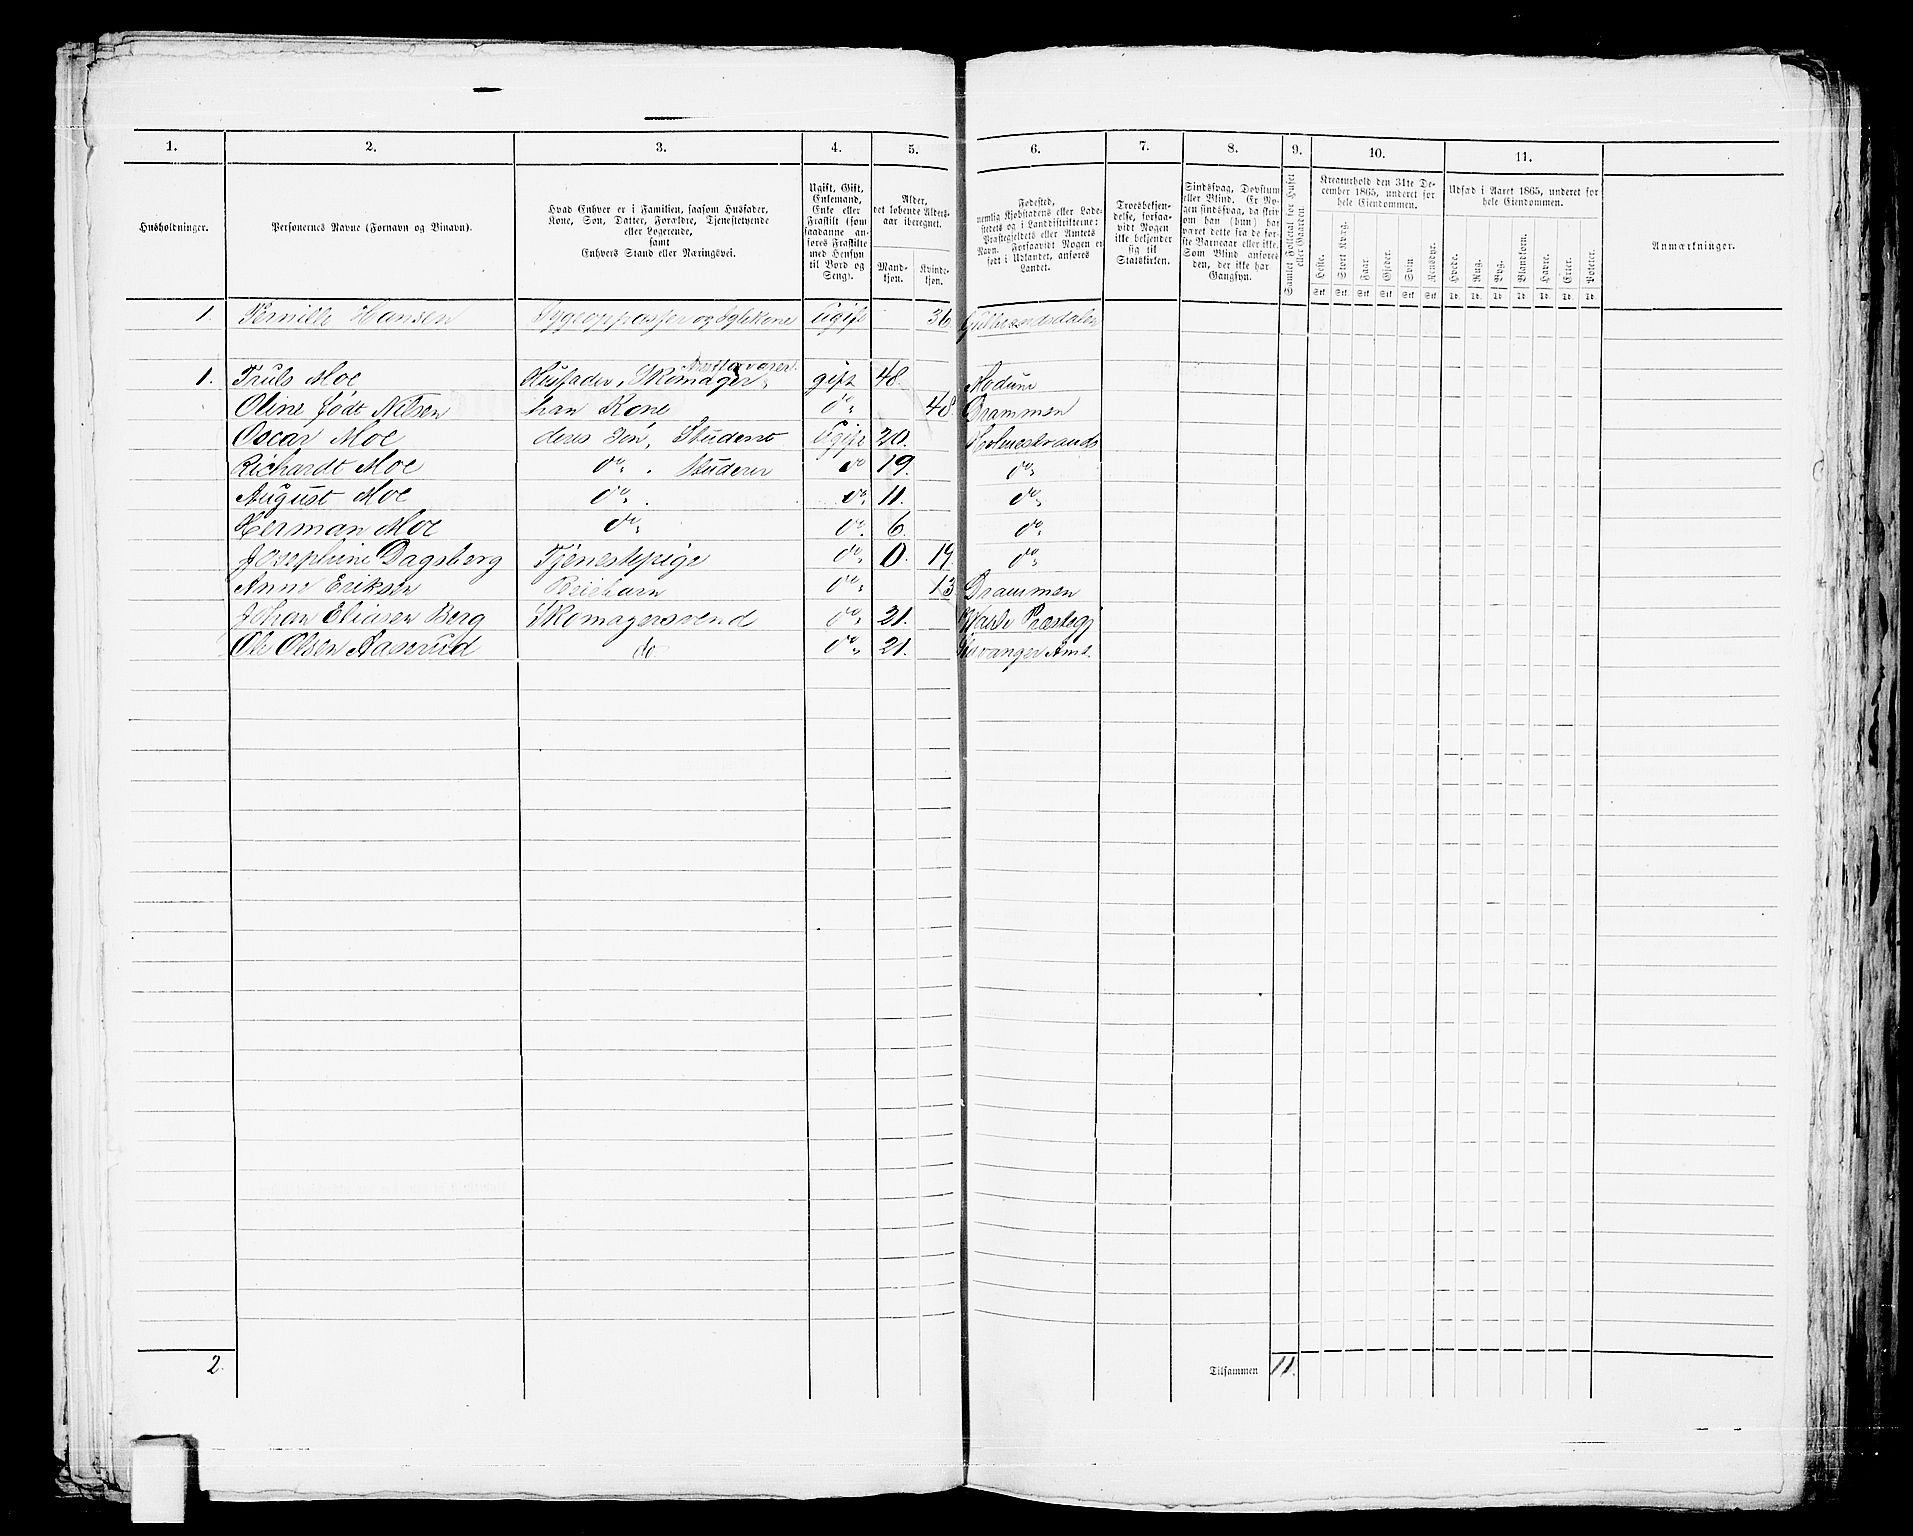 1. 2. 3. 4. 5. 6. 7. 8. 9. 10. 11.
Husholdninger.
Personernes Navne (Fornavn og Tilnavn).
Hvad Enhver er i Familien, saasom Husfader,
Kone, Søn, Datter, Forældre, Tjenestetyende
eller Logerende,
samt
Enhvers Stand eller Næringsvei.
Ugift, Gift,
Enkemand,
Enke eller
Fraskilt (som
saadanne an-
føres Fraskilte
med Hensyn
til Bord og
Seng).
Alder,
det løbende Alders-
aar iberegnet.
Mand-
kjøn.
Kvinde-
kjøn.
Fødested,
nemlig Kjøbstadens eller Lade-
stedets og i Landdistrikterne:
Præstegjeldets eller Amtets
Navn. Forsaavidt Nogen er
født i Udlandet, anføres
Landet.
Troesbekjen-
delse, forsaa-
vidt Nogen
ikke bekjender
sig til
Statskirken.
Sindssvag, Døvstum
eller Blind. Er No-
gen sindssvag, da skriv
om han (hun) har
været dette fra de før-
ste Barneaar eller ikke.
Som Blind anføres
den, der ikke har
Gangsyn.
Samlet Folketal for Huset
eller Gaarden.
Kreaturhold den 31te De-
cember 1865, underet for
hele Eiendommen.
Heste. Stort Kvæg. Faar. Gjeder. Svin. Rensdyr.
Stk. Stk. Stk. Stk. Stk. Stk.
Udsæd i Aaret 1865, underet for
hele Eiendommen.
Hvede. Rug. Byg. Blandkorn. Havre. Erter. Poteter.
Td. Td. Td. Td. Td. Td. Td.
Anmærkninger.
1. Pernille Hansen Sygeopasser og Sylekone Ugift 36 Gulbrandsdalen
1. Truls Moe Husfader, Skomager gift 48. Modum
Oline født Nilsen han Kone do 48. Drammen
Oscar Moe deres Søn, Student Ugift 20. Holmestrand
Richardt Moe do. Studerer do 19. do
August Moe do. do 11. do
Herman Moe do do. 6. do
Josephine Dagsberg Tjenestepige do 0. 19. do
Anne Eriksen Pleiebarn do 13 Drammen
Johan Eliasen Berg Skomagersvend do 21. Præstegj
Ole Olsen Aaserud do do 21. Stavanger Amt.
2. Tilsammen 11.